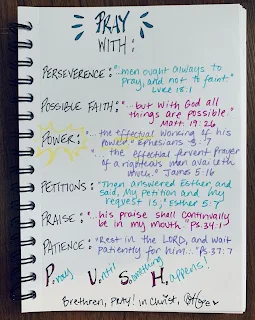 PRAY
WITH:
PERSEVERENCE: "...men ought always to
pray, and not to faint."
Luke 18:1
POSSIBLE FAITH: "...but with God all
things are possible."
Matt. 19:26
POWER: "...the effectual working of his
power." Ephesians 3:7
"...the effectual fervent prayer
of a righteous man availeth
much." James 5:16
PETITIONS: "Then answered Esther, and
said, My petition and my
request is;" Esther 5:7
PRAISE: "...his praise shall continually
be in my mouth." Ps. 34:1
PATIENCE: "Rest in the LORD, and wait
patiently for him..." Ps. 37:7
P.ray U.ntil S.omething H.appens!
Brethren, Pray! in Christ,